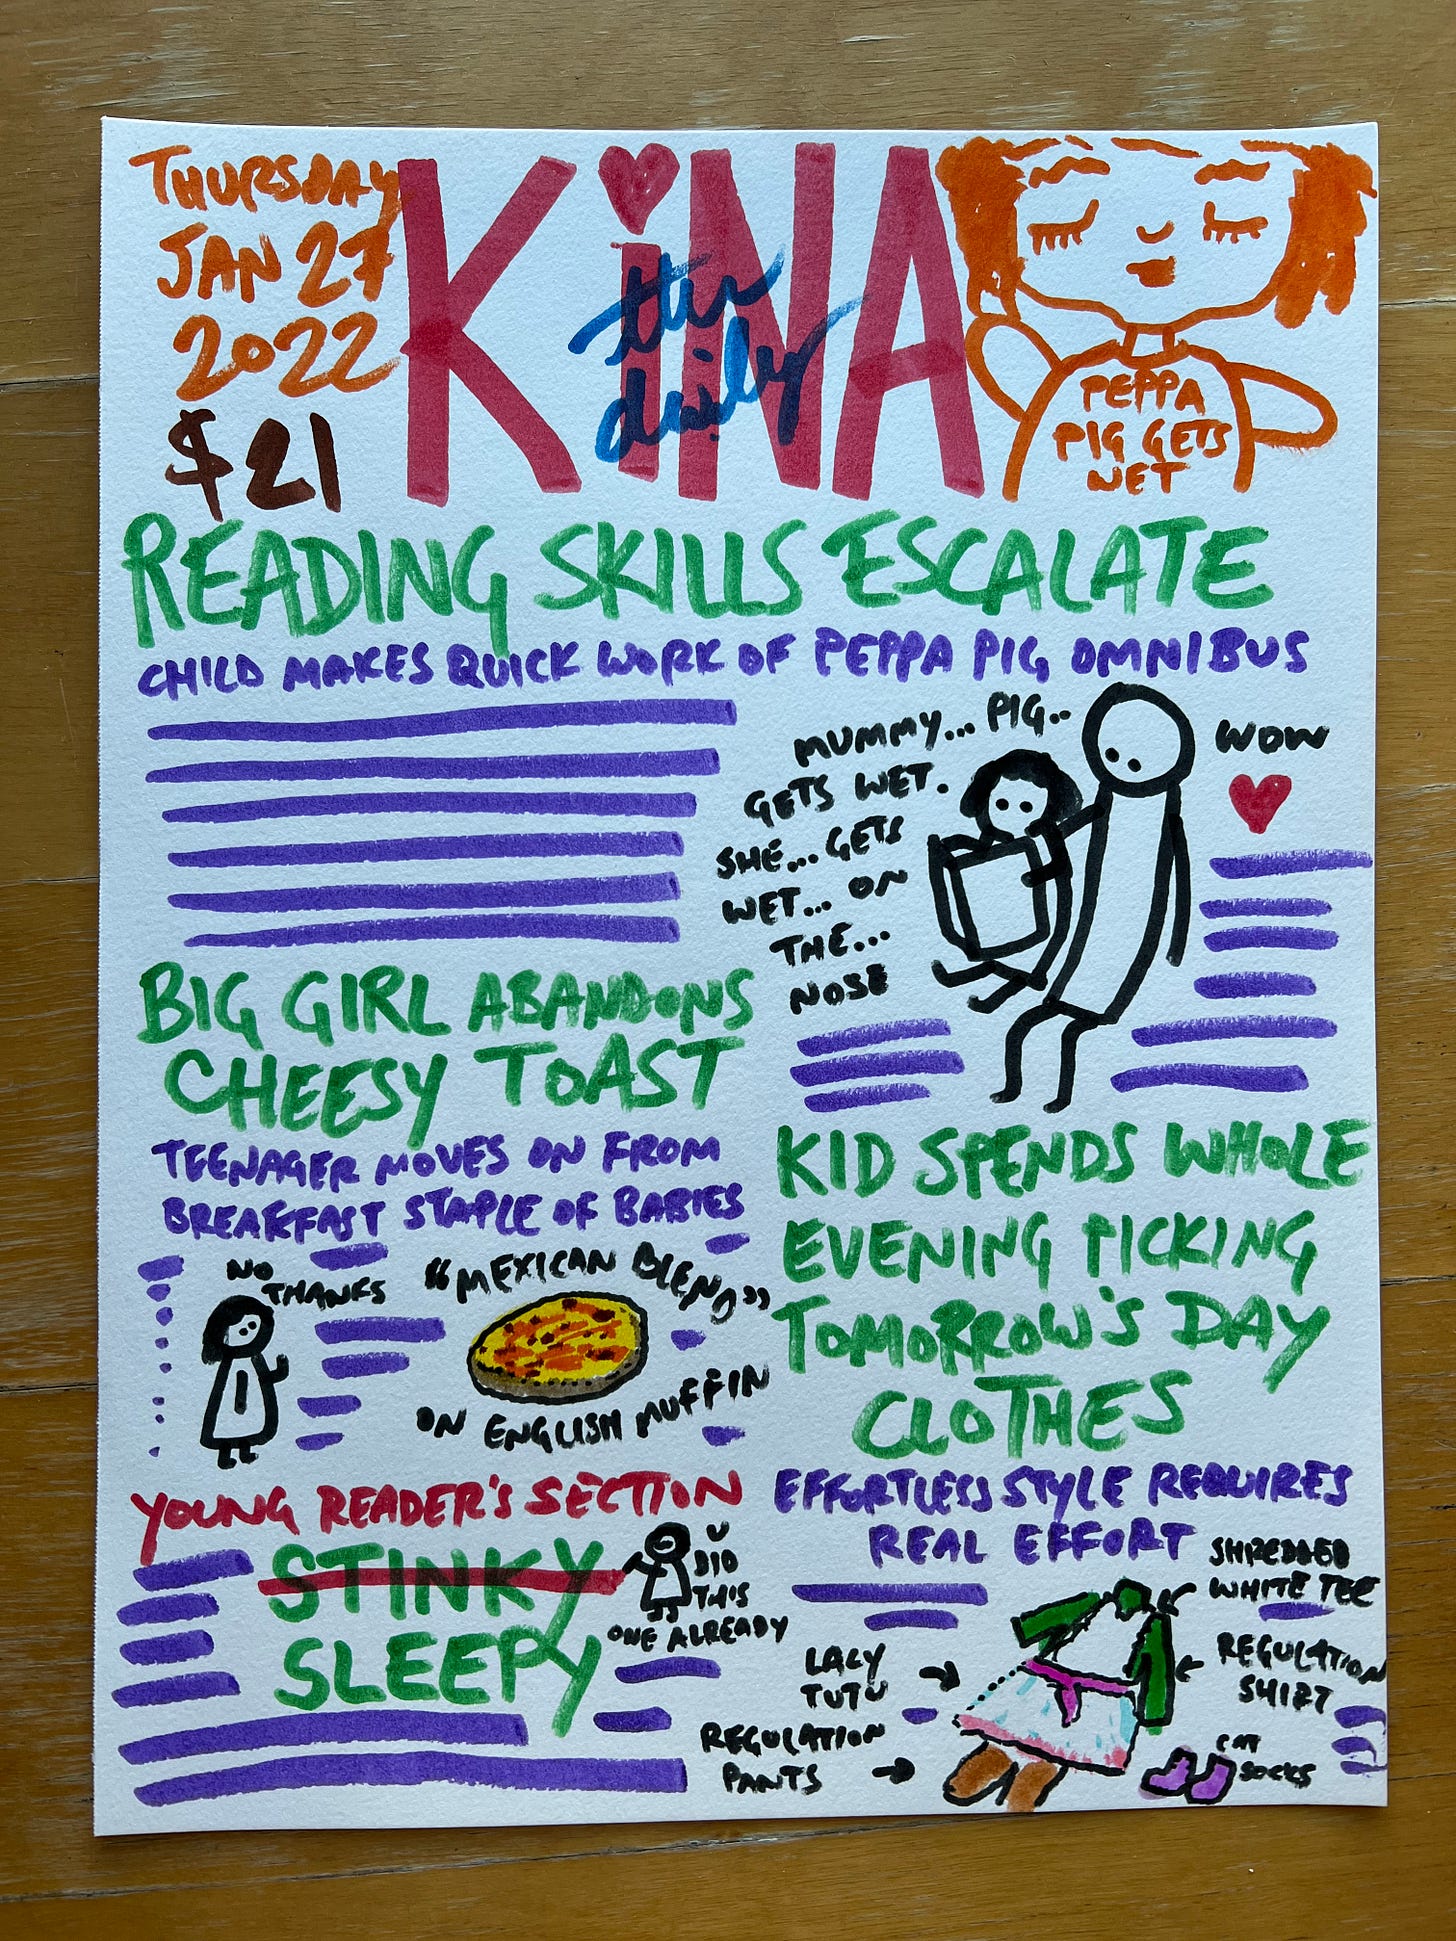 THURSDAY
JAN 27
2022
$21
KiNA
the
daily
PEPPA
PIG GETS
WET
READING SKILLS ESCALATE
CHILD MAKES QUICK WORK OF PEPPA PIG OMNIBUS
MUMMY... PIG..
GETS WET.
SHE... GETS
WET... ON
THE...
NOSE
WOW
BIG GIRL ABANDONS
CHEESY TOAST
TEENAGER MOVES ON FROM
BREAKFAST STAPLE OF BABIES
NO
THANKS
"MEXICAN BLEND"
ON ENGLISH MUFFIN
KID SPENDS WHOLE
EVENING PICKING
TOMORROW'S DAY
CLOTHES
EFFORTLESS STYLE REQUIRES
REAL EFFORT
SHREDDED
WHITE TEE
LACY
TUTU
REGULATION
SHIRT
REGULATION
PANTS
CAT
SOCKS
YOUNG READER'S SECTION
STINKY
SLEEPY
U
DID
THIS
ONE ALREADY